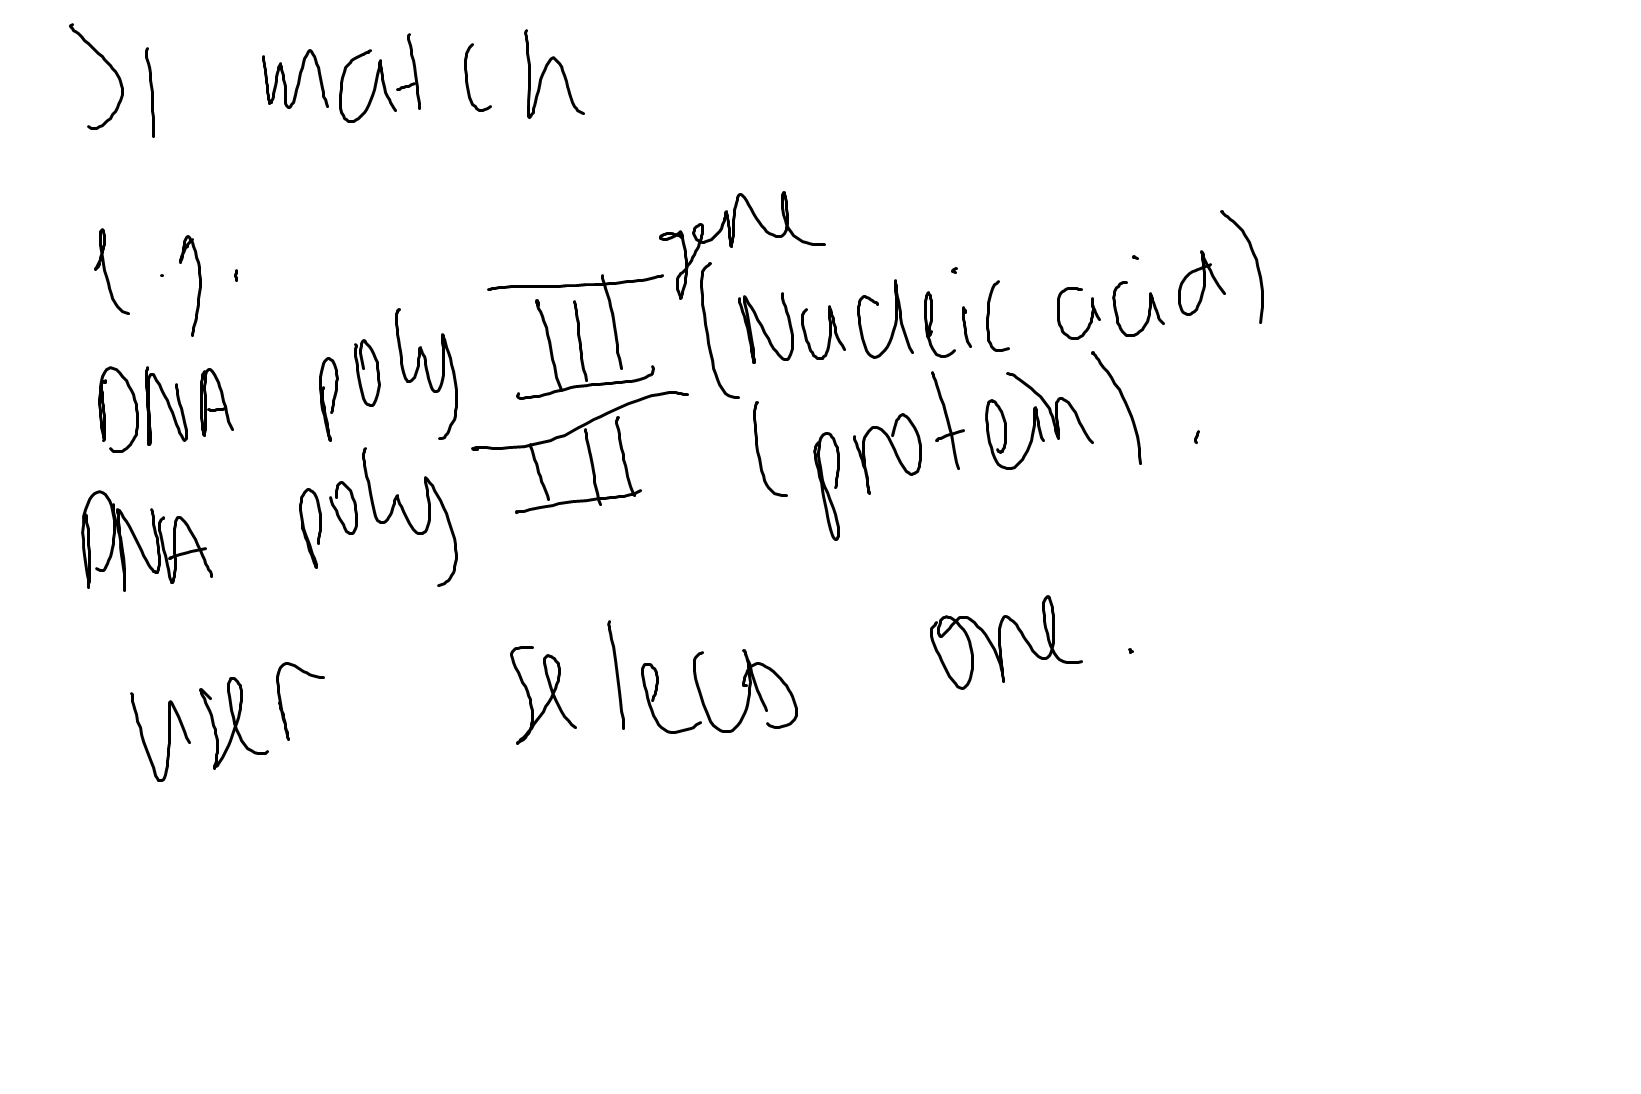 >1 match
e.g.
DNA poly III gene (Nucleic acid)
DNA poly III (protein).
user selecs one.